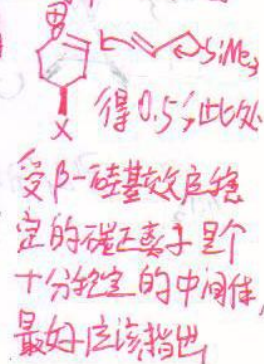 ⊕
SiMe₃
X
得0.5,此处
受β-硅基效应稳
定的碳正离子是个
十分稳定的中间体,
最好应该指出